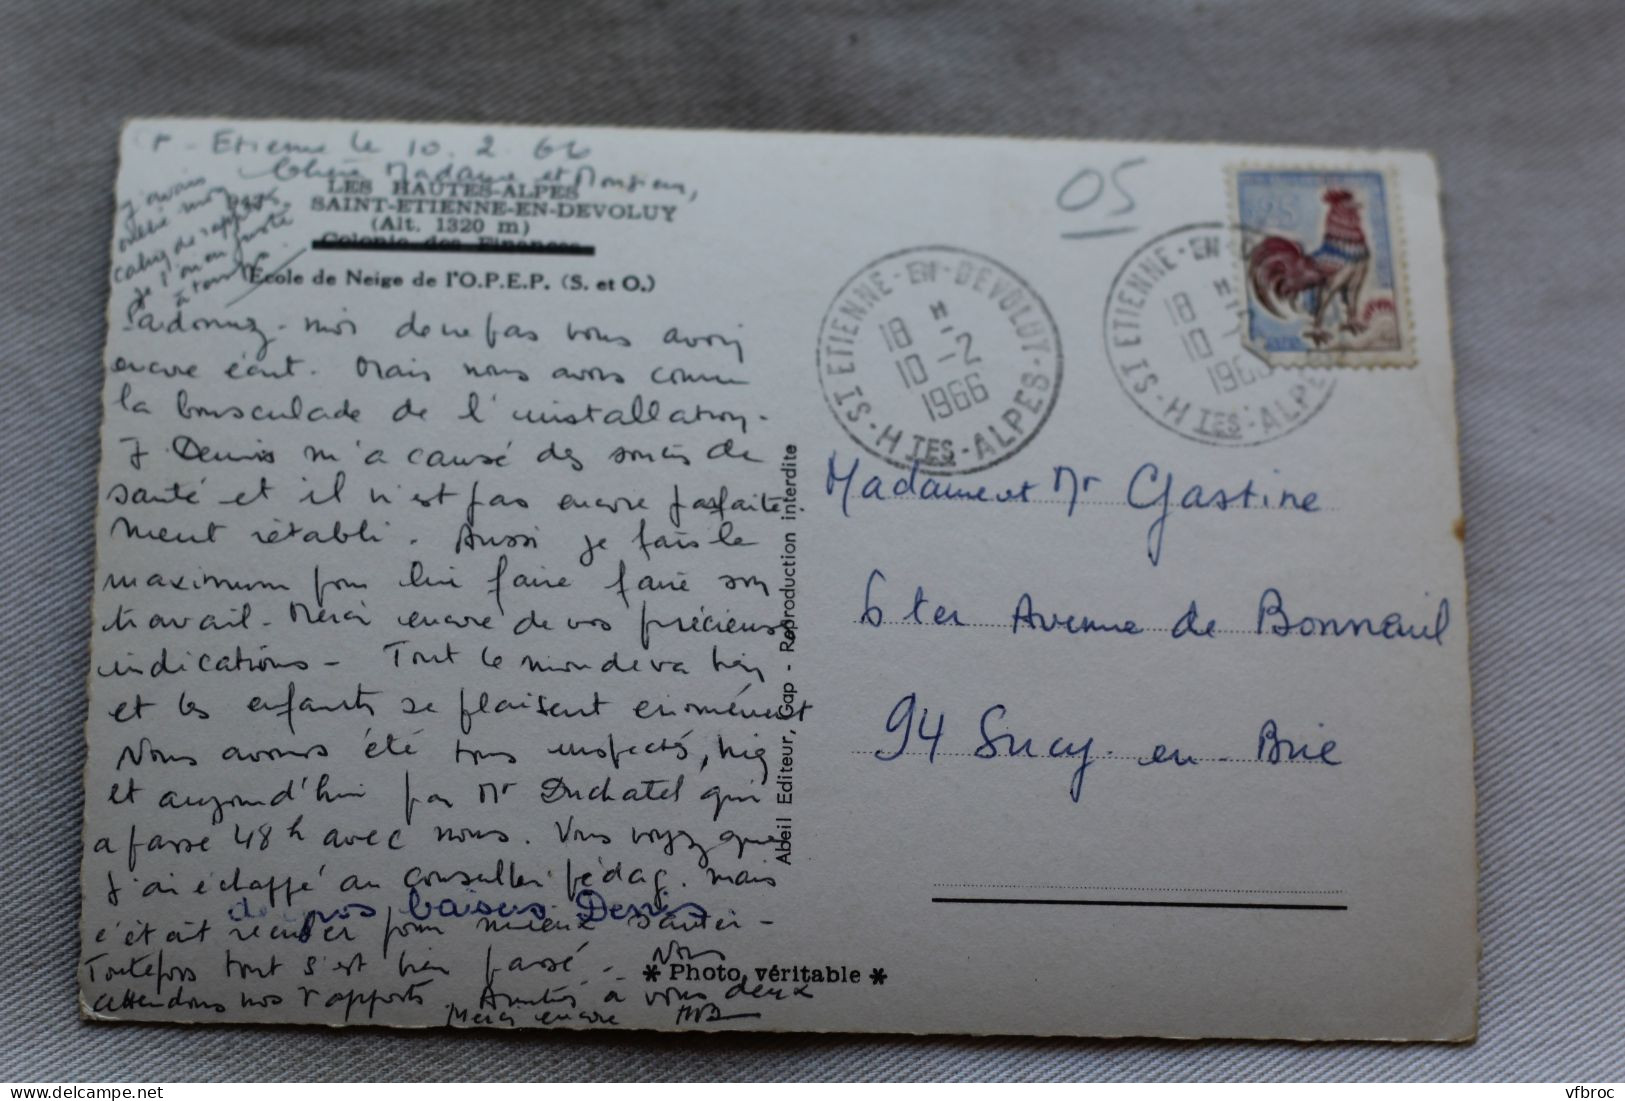 St-Etienne le 10. 2. 66
Chère Madame et Monsieur,
LES HAUTES-ALPES
SAINT-ETIENNE-EN-DEVOLUY
(Alt. 1320 m)
Colonie des Finances
Ecole de Neige de l'O.P.E.P. (S. et O.)
j'avais
oublié mon
cahier de rapports
je l'ai en
à
Pardonnez-moi de ne pas vous avoir
encore écrit. Mais nous avons connu
la bousculade de l'installation.
J Denis m'a causé des soucis de
santé et il n'est pas encore parfaite-
ment rétabli. Aussi je fais le
maximum pour lui faire faire son
travail. Merci encore de vos précieuses
indications - Tout le monde va bien
et les enfants se plaisent énormément
Nous avons été tous inspectés, hier
et aujourd'hui par Mr Duchatel qui
a passé 48 h avec nous. Vous voyez que
j'ai échappé au conseiller pédag. mais
c'était reculer pour mieux sauter -
de gros baisers Denis
Toutefois tout s'est bien passé. Nous
attendons nos rapports. Amitiés à vous deux
Merci encore
Abeil Editeur, Gap - Reproduction interdite
* Photo véritable *
05
25
ST ETIENNE-EN-DEVOLUY
18 H
10 -2
1966
HTES-ALPES
ST ETIENNE-EN-
18 H
10 -
1966
HTES-ALPES
Madame et Mr Gastine
6 ter Avenue de Bonneuil
94 Sucy-en-Brie
vfbroc